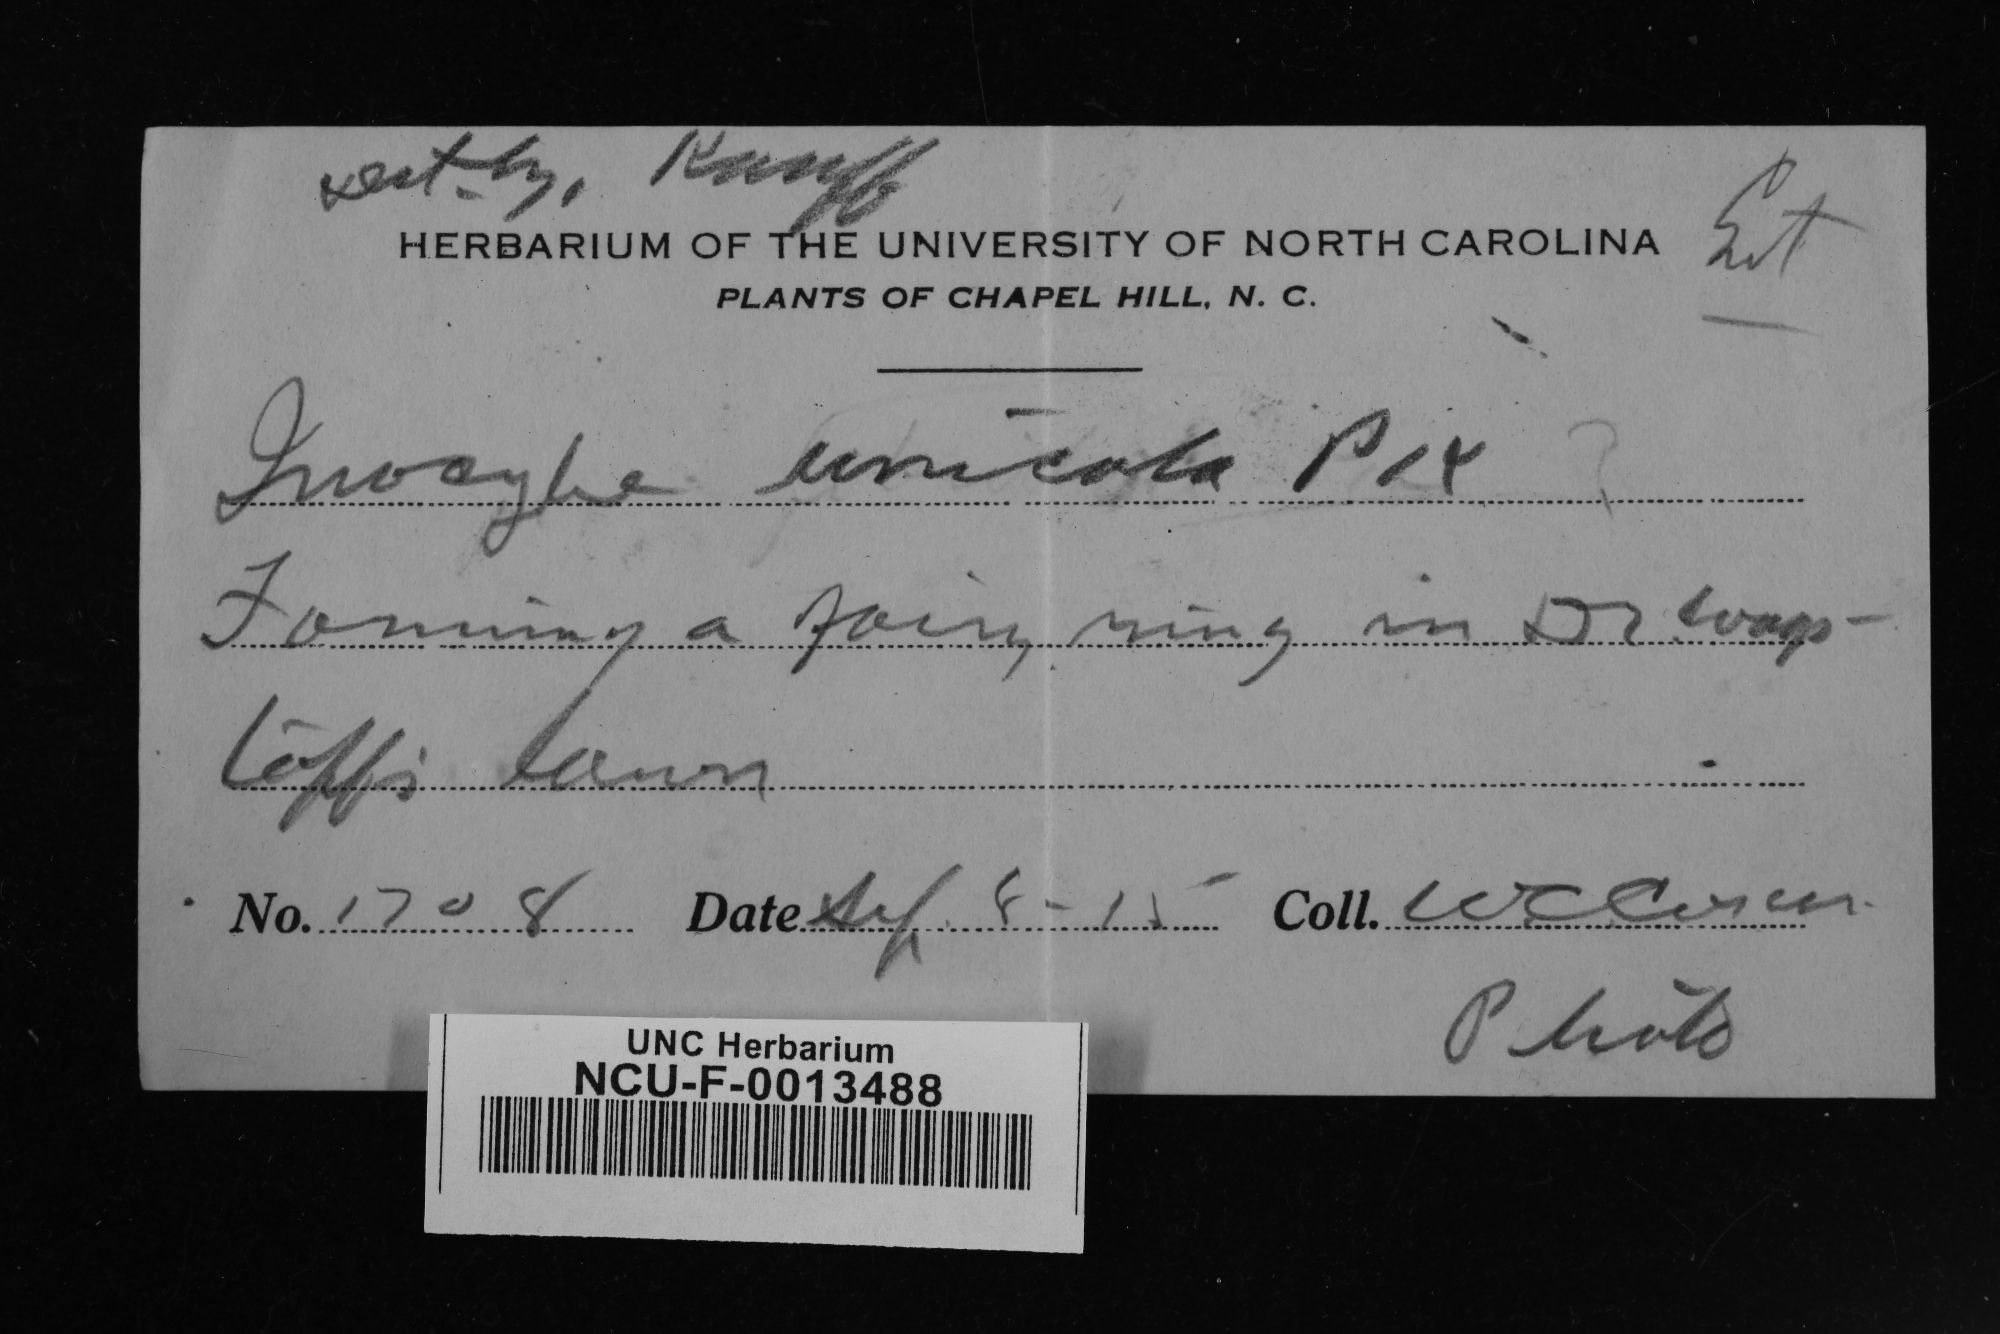 det. by. Kauff
HERBARIUM OF THE UNIVERSITY OF NORTH CAROLINA
PLANTS OF CHAPEL HILL, N. C.
Inocybe unicola Pk ?
Forming a fairy ring in Dr Wags-
toff's lawn
No. 1708 Date Sep. 8-15 Coll. WC Coker
Photo
UNC Herbarium
NCU-F-0013488